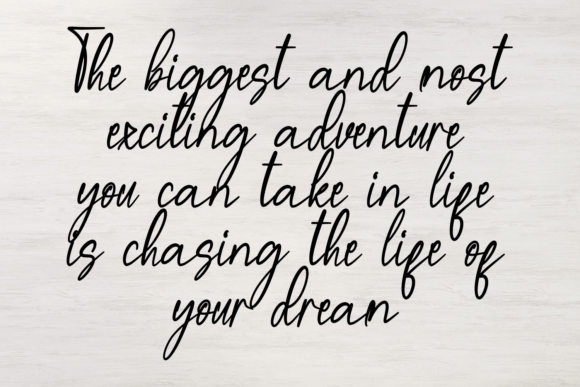 The biggest and most
exciting adventure
you can take in life
is chasing the life of
your dream